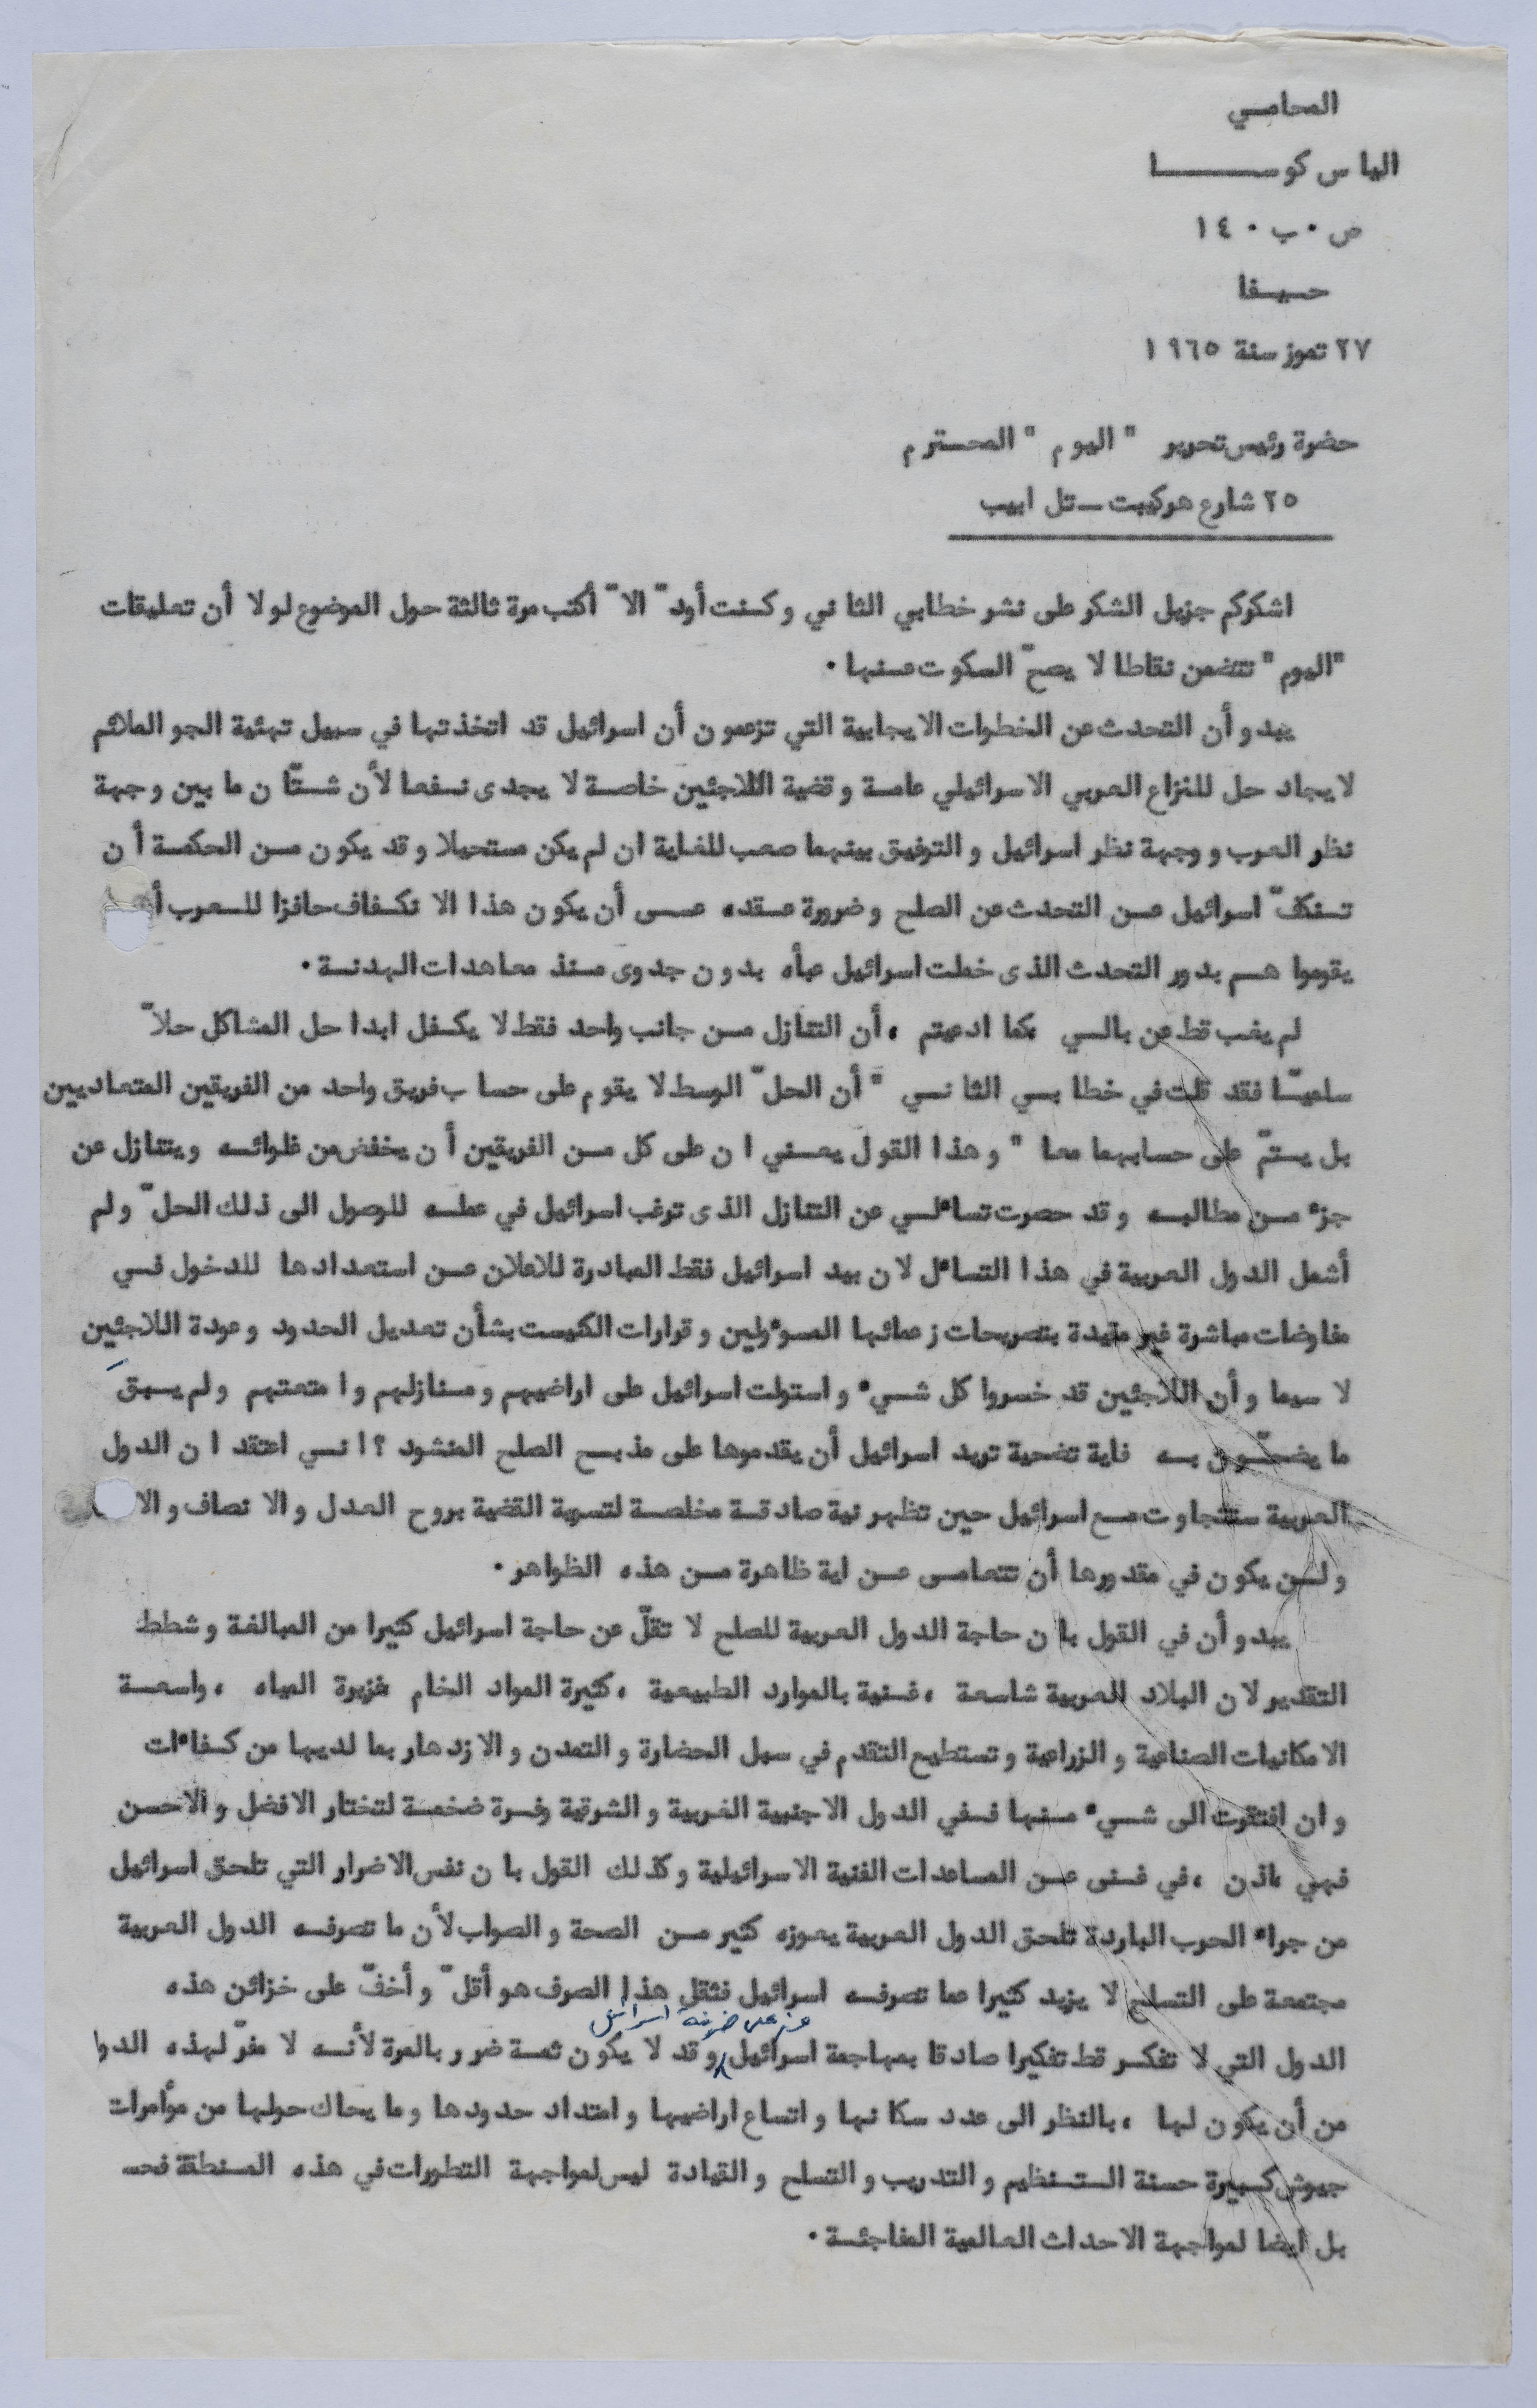 المحامي
الياس كوسا
ص٠ب٠ ١٤٠
حيفا
٢٧ تموز سنة ١٩٦٥
حضرة رئيس تحرير " اليوم " المحترم
٢٥ شارع هركيبت - تل ابيب
اشكركم جزيل الشكر على نشر خطابي الثاني وكنت أودّ الاّ أكتب مرة ثالثة حول الموضوع لولا أن تعليقات
"اليوم" تتضمن نقاطا لا يصحّ السكوت عنها٠
يبدو أن التحدث عن الخطوات الايجابية التي تزعمون أن اسرائيل قد اتخذتها في سبيل تهئية الجو الملائم
لايجاد حل للنزاع العربي الاسرائيلي عامة وقضية اللاجئين خاصة لا يجدى نفعا لأن شتّان ما بين وجهة
نظر العرب ووجهة نظر اسرائيل والتوفيق بينهما صعب للغاية ان لم يكن مستحيلا وقد يكون من الحكمة أن
تستنكفّ اسرائيل عن التحدث عن الصلح وضرورة عقده عسى أن يكون هذا الانكفاف حافزا للعرب
يقوموا هم بدور التحدث الذى خملت اسرائيل عبأه بدون جدوى منذ معاهدات الهدنة٠
لم يغب قط عن بالي ،كما ادعيتم ،أن التنازل من جانب واحد فقط لا يكفل ابدا حل المشاكل حلاّ
سلميّا فقد قلت في خطابي الثاني " أن الحلّ الوسط لا يقوم على حساب فريق واحد من الفريقين المتعاديين
بل يتمّ على حسابهما معا " وهذا القول يعني ان على كل من الفريقين أن يخفض من غلوائه ويتنازل عن
جزء من مطالبه وقد حصرت تساءلي عن التنازل الذى ترغب اسرائيل في عمله للوصول الى ذلك الحلّ ولم
أشمل الدول العربية في هذا التساءل لان بيد اسرائيل فقط المبادرة للاعلان عن استعدادها للدخول في
مفاوضات مباشرة غير مقيدة بتصريحات زعمائها المسوءولين وقرارات الكنيست بشأن تعديل الحدود وعودة اللاجئين
لا سيما وأن اللاجئين قد خسروا كل شيء واستولت اسرائيل على اراضيهم ومنازلهم وامتعتهم ولم يبقَ
ما يضحّون به فاية تضحية تريد اسرائيل أن يقدموها على مذبح الصلح المنشود ؟ اني اعتقد ان الدول
العربية ستتجاوت مع اسرائيل حين تظهر نية صادقة مخلصة لتسوية القضية بروح العدل والانصاف
ولن يكون في مقدورها أن تتعامى عن اية ظاهرة من هذه الظواهر٠
يبدو أن في القول بان حاجة الدول العربية للصلح لا تقلّ عن حاجة اسرائيل كثيرا من المبالغة وشطط
التقدير لان البلاد العربية شاسعة ،غنية بالموارد الطبيعية ،كثيرة المواد الخام ،غزيرة المياه ،واسعة
الامكانيات الصناعية والزراعية وتستطيع التقدم في سبل الحضارة والتمدن والازدهار بما لديها من كفاءات
وان افتقرت الى شيء منها ففي الدول الاجنبية الغربية والشرقية وفرة ضخمة لتختار الافضل والاحسن
فهي ،اذن ،في غنى عن المساعدات الفنية الاسرائيلية وكذلك القول بان نفس الاضرار التي تلحق اسرائيل
من جراء الحرب الباردة تلحق الدول العربية يعوزه كثير من الصحة والصواب لأن ما تصرفه الدول العربية
مجتمعة على التسلح لا يزيد كثيرا عما تصرفه اسرائيل فثقل هذا الصرف هو أقلّ وأخفّ على خزائن هذه
اسرائيل
الدول التي لا تفكر قط تفكيرا صادقا بمهاجمة اسرائيل وقد لا يكون ثمة ضرر بالمرة لأنه لا مفرّ لهذه الدول
من أن يكون لها ،بالنظر الى عدد سكانها واتساع اراضيها وامتداد حدودها وما يحاك حولها من موأمرات
جيوش كبيرة حسنة التنظيم والتدريب والتسلح والقيادة ليس لمواجهة التطورات في هذه المنطقة فحسب
بل ايضا لمواجهة الاحداث العالمية المفاجئة٠